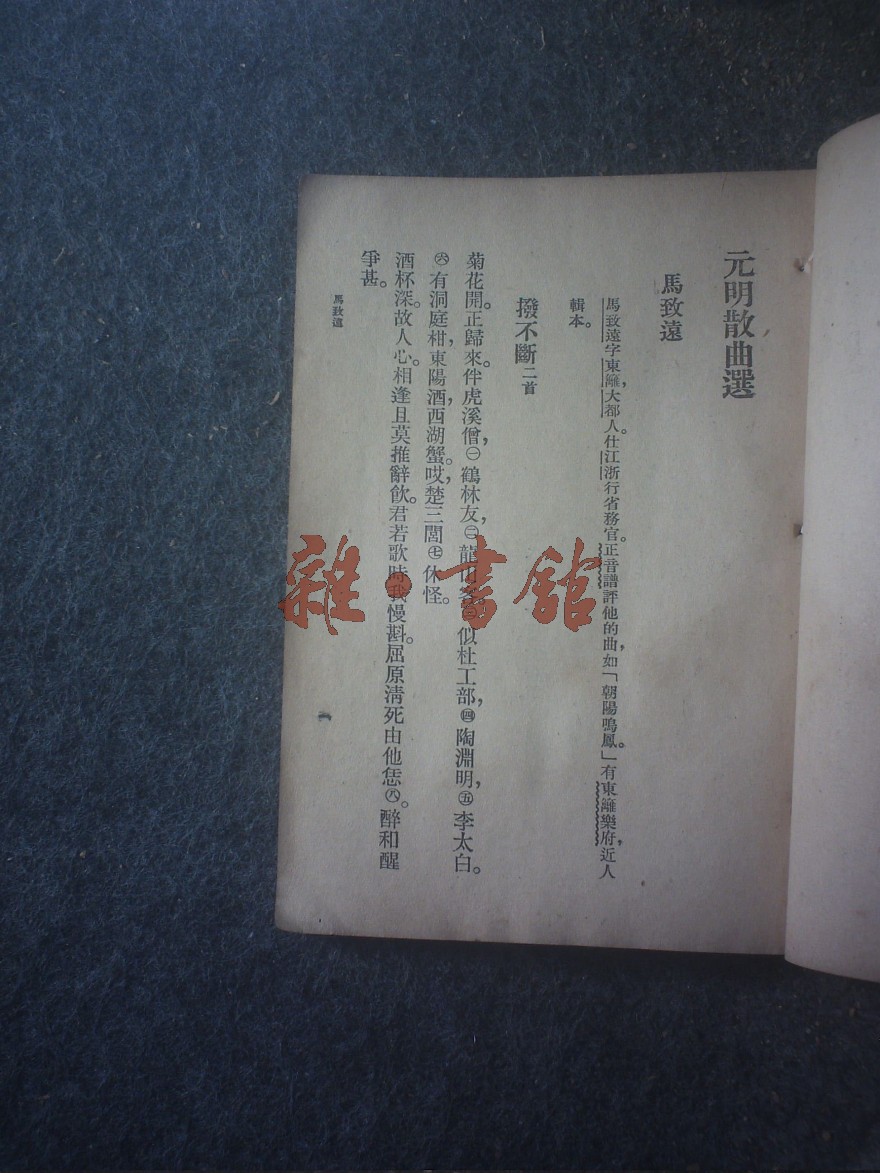 元明散曲選
馬致遠
馬致遠字東籬，大都人。仕江浙行省務官。正音譜評他的曲，如「朝陽鳴鳳。」有東籬樂府，近人
輯本。
撥不斷二首
菊花開。正歸來。伴虎溪僧，㊀鶴林友，㊁龍山客。㊂似杜工部，㊃陶淵明，㊄李太白。
㊅有洞庭柑，東陽酒，西湖蟹。哎，楚三閭㊆休怪。
酒杯深。故人心。相逢且莫推辭飲。君若歌時我慢斟。屈原清死由他恁㊇。醉和醒
爭甚。
馬致遠
一
雜·書館